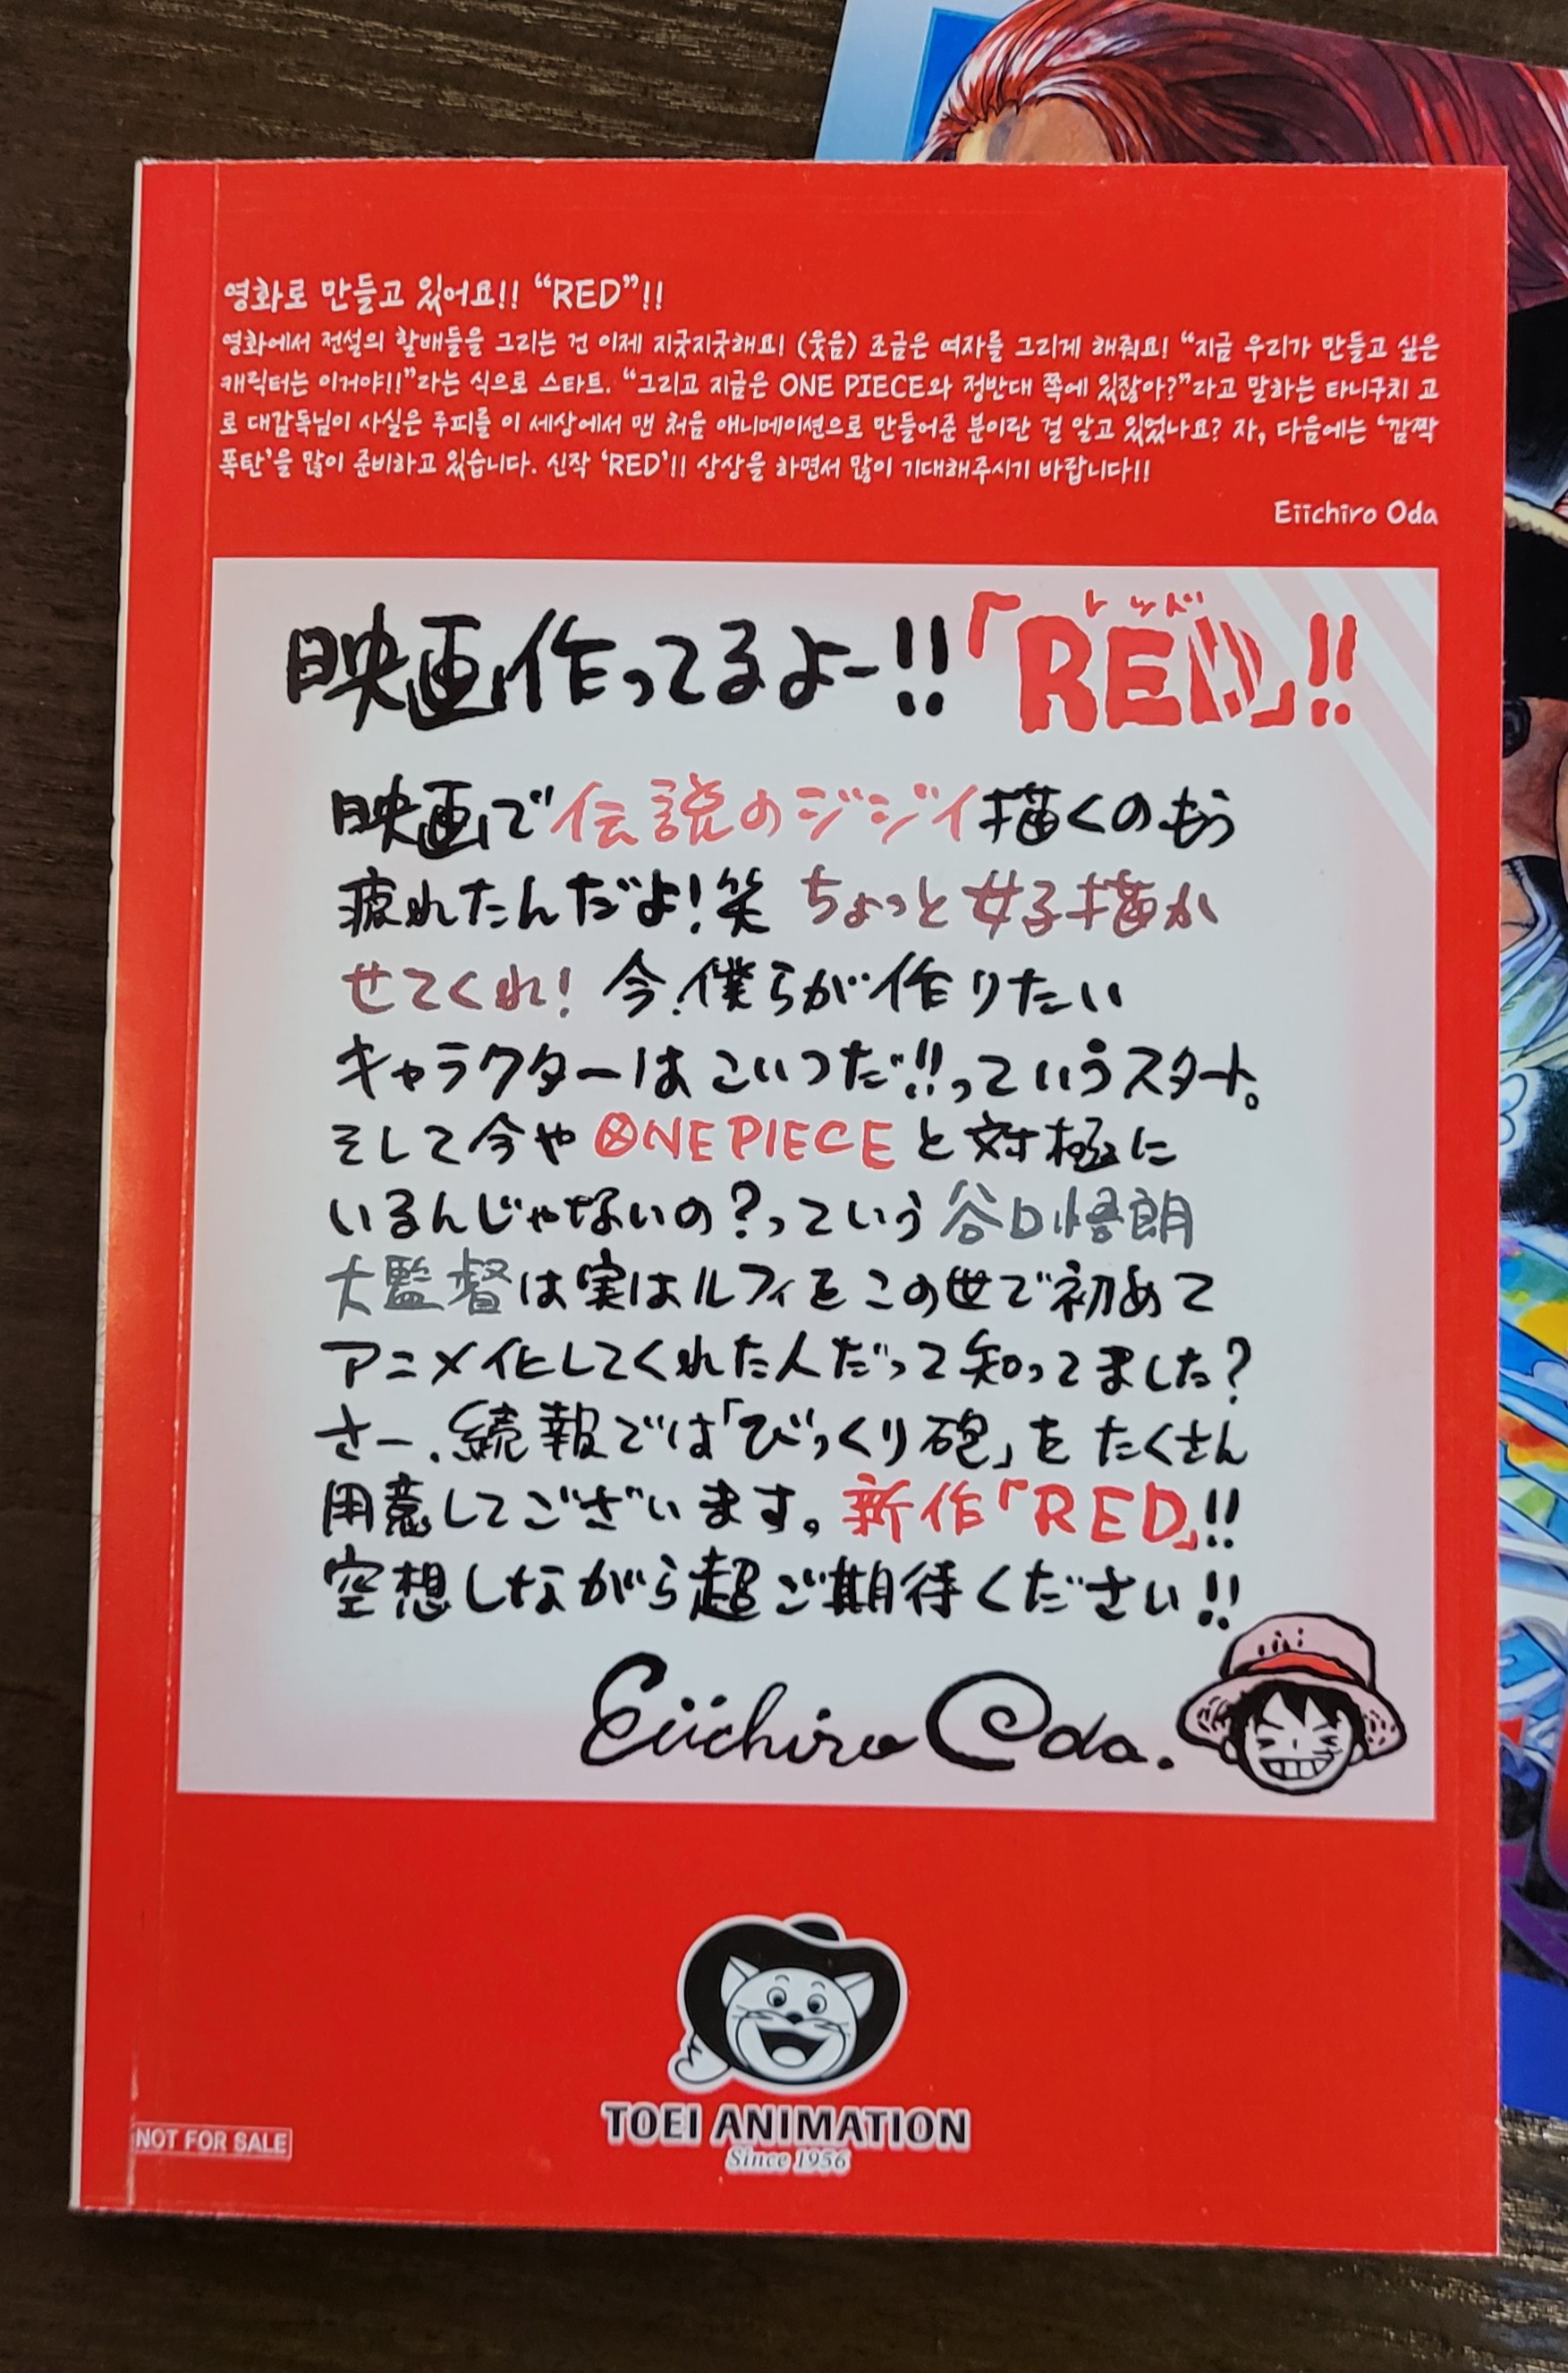 영화로 만들고 있어요!! “RED”!!
영화에서 전설의 할배들을 그리는 건 이제 지긋지긋해요! (웃음) 조금은 여자를 그리게 해줘요! “지금 우리가 만들고 싶은
캐릭터는 이거야!!”라는 식으로 스타트. “그리고 지금은 ONE PIECE와 정반대 쪽에 있잖아?”라고 말하는 타니구치 고
로 대감독님이 사실은 루피를 이 세상에서 맨 처음 애니메이션으로 만들어준 분이란 걸 알고 있었나요? 자, 다음에는 ‘깜짝
폭탄’을 많이 준비하고 있습니다. 신작 ‘RED’!! 상상을 하면서 많이 기대해주시기 바랍니다!!
Eiichiro Oda
レッド
映画作ってるよー!!「RED」!!
映画で伝説のジジイ描くのもう
疲れたんだよ!笑 ちょっと女子描か
せてくれ! 今、僕らが作りたい
キャラクターはこいつだ!!っていうスタート。
そして今やONE PIECEと対極に
いるんじゃないの?っていう谷口悟朗
大監督は実はルフィをこの世で初めて
アニメ化してくれた人だって知ってました?
さー、続報では「びっくり砲」をたくさん
用意してございます。新作「RED」!!
空想しながら超ご期待ください!!
Eiichiro Oda.
TOEI ANIMATION
Since 1956
NOT FOR SALE